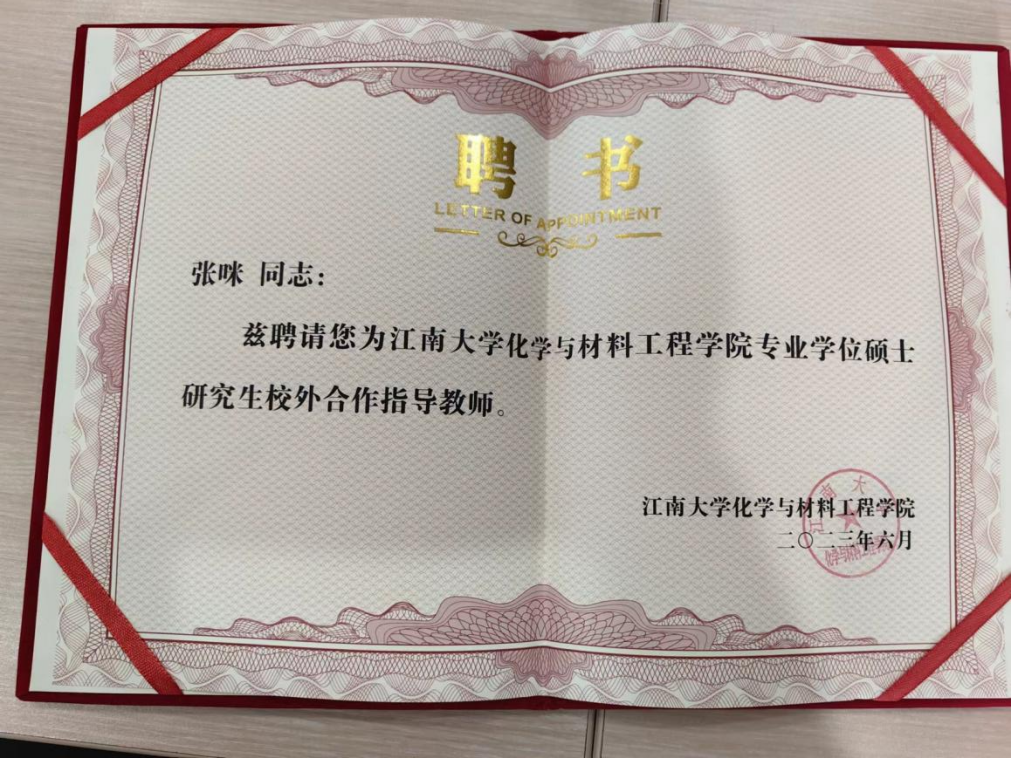 聘 书
LETTER OF APPOINTMENT
张咪 同志：
兹聘请您为江南大学化学与材料工程学院专业学位硕士
研究生校外合作指导教师。
江南大学化学与材料工程学院
二〇二三年六月